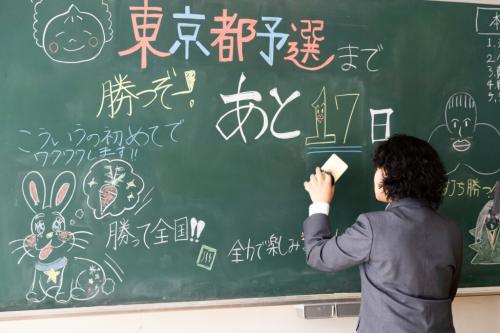 東京都予選まで
勝つぞー!
あと17日
こういうの初めてで
ワクワクします!!
勝って全国!!
全力で楽しみ
打ち勝つ
本
1.
2.
3.
4.